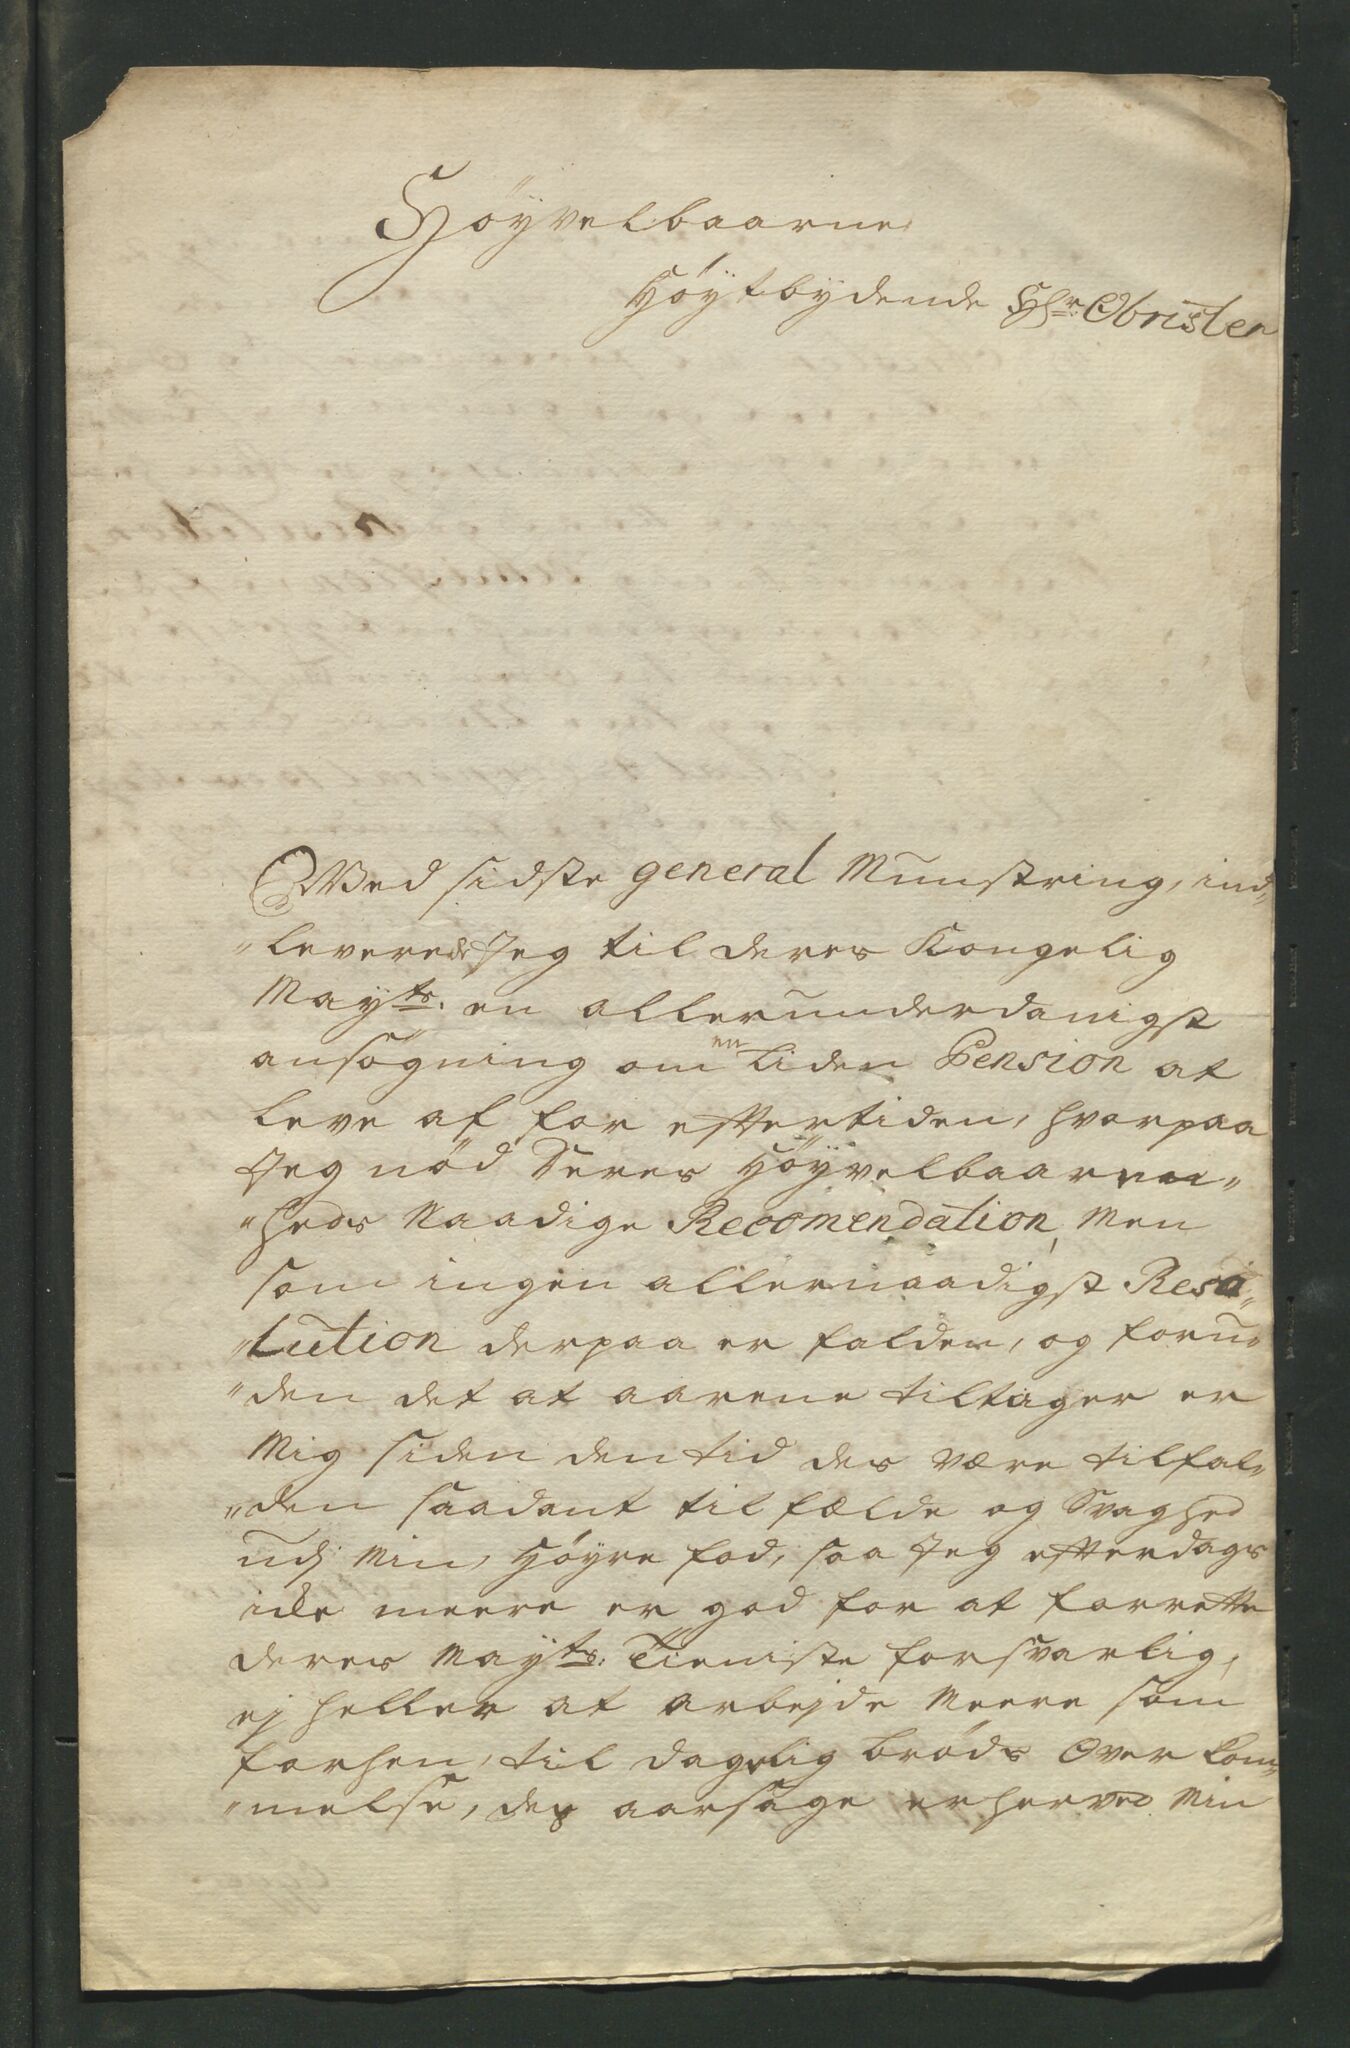 Höyvelbaarne
Höytbydende Hhr: Obrister
Wed sidste general Munstring, ind„
„leverede Jeg til deres Kongelig
Mayts: en allerunderdanigst
ansögning om en liden Pension at
leve af for efftertiden, hvorpaa
Jeg nöd Deres Höyvelbaarn„
„heds Naadige Recomendation, Men
som ingen allernaadigst Reso„
„lution derpaa er falden, og foru„
„den det at aarene tiltager er
Mig siden den tid des være tilfal„
„den saadant til fælde og Svaghed
udj Min Höyre fod, saa Jeg efterdags
icke meere er god for at forrette
deres Mayts: Tieniste forsvarlig,
ej heller at arbejde Meere som
forhen, til dagelig bröds Over kom„
„melse, des aarsage er herved Min